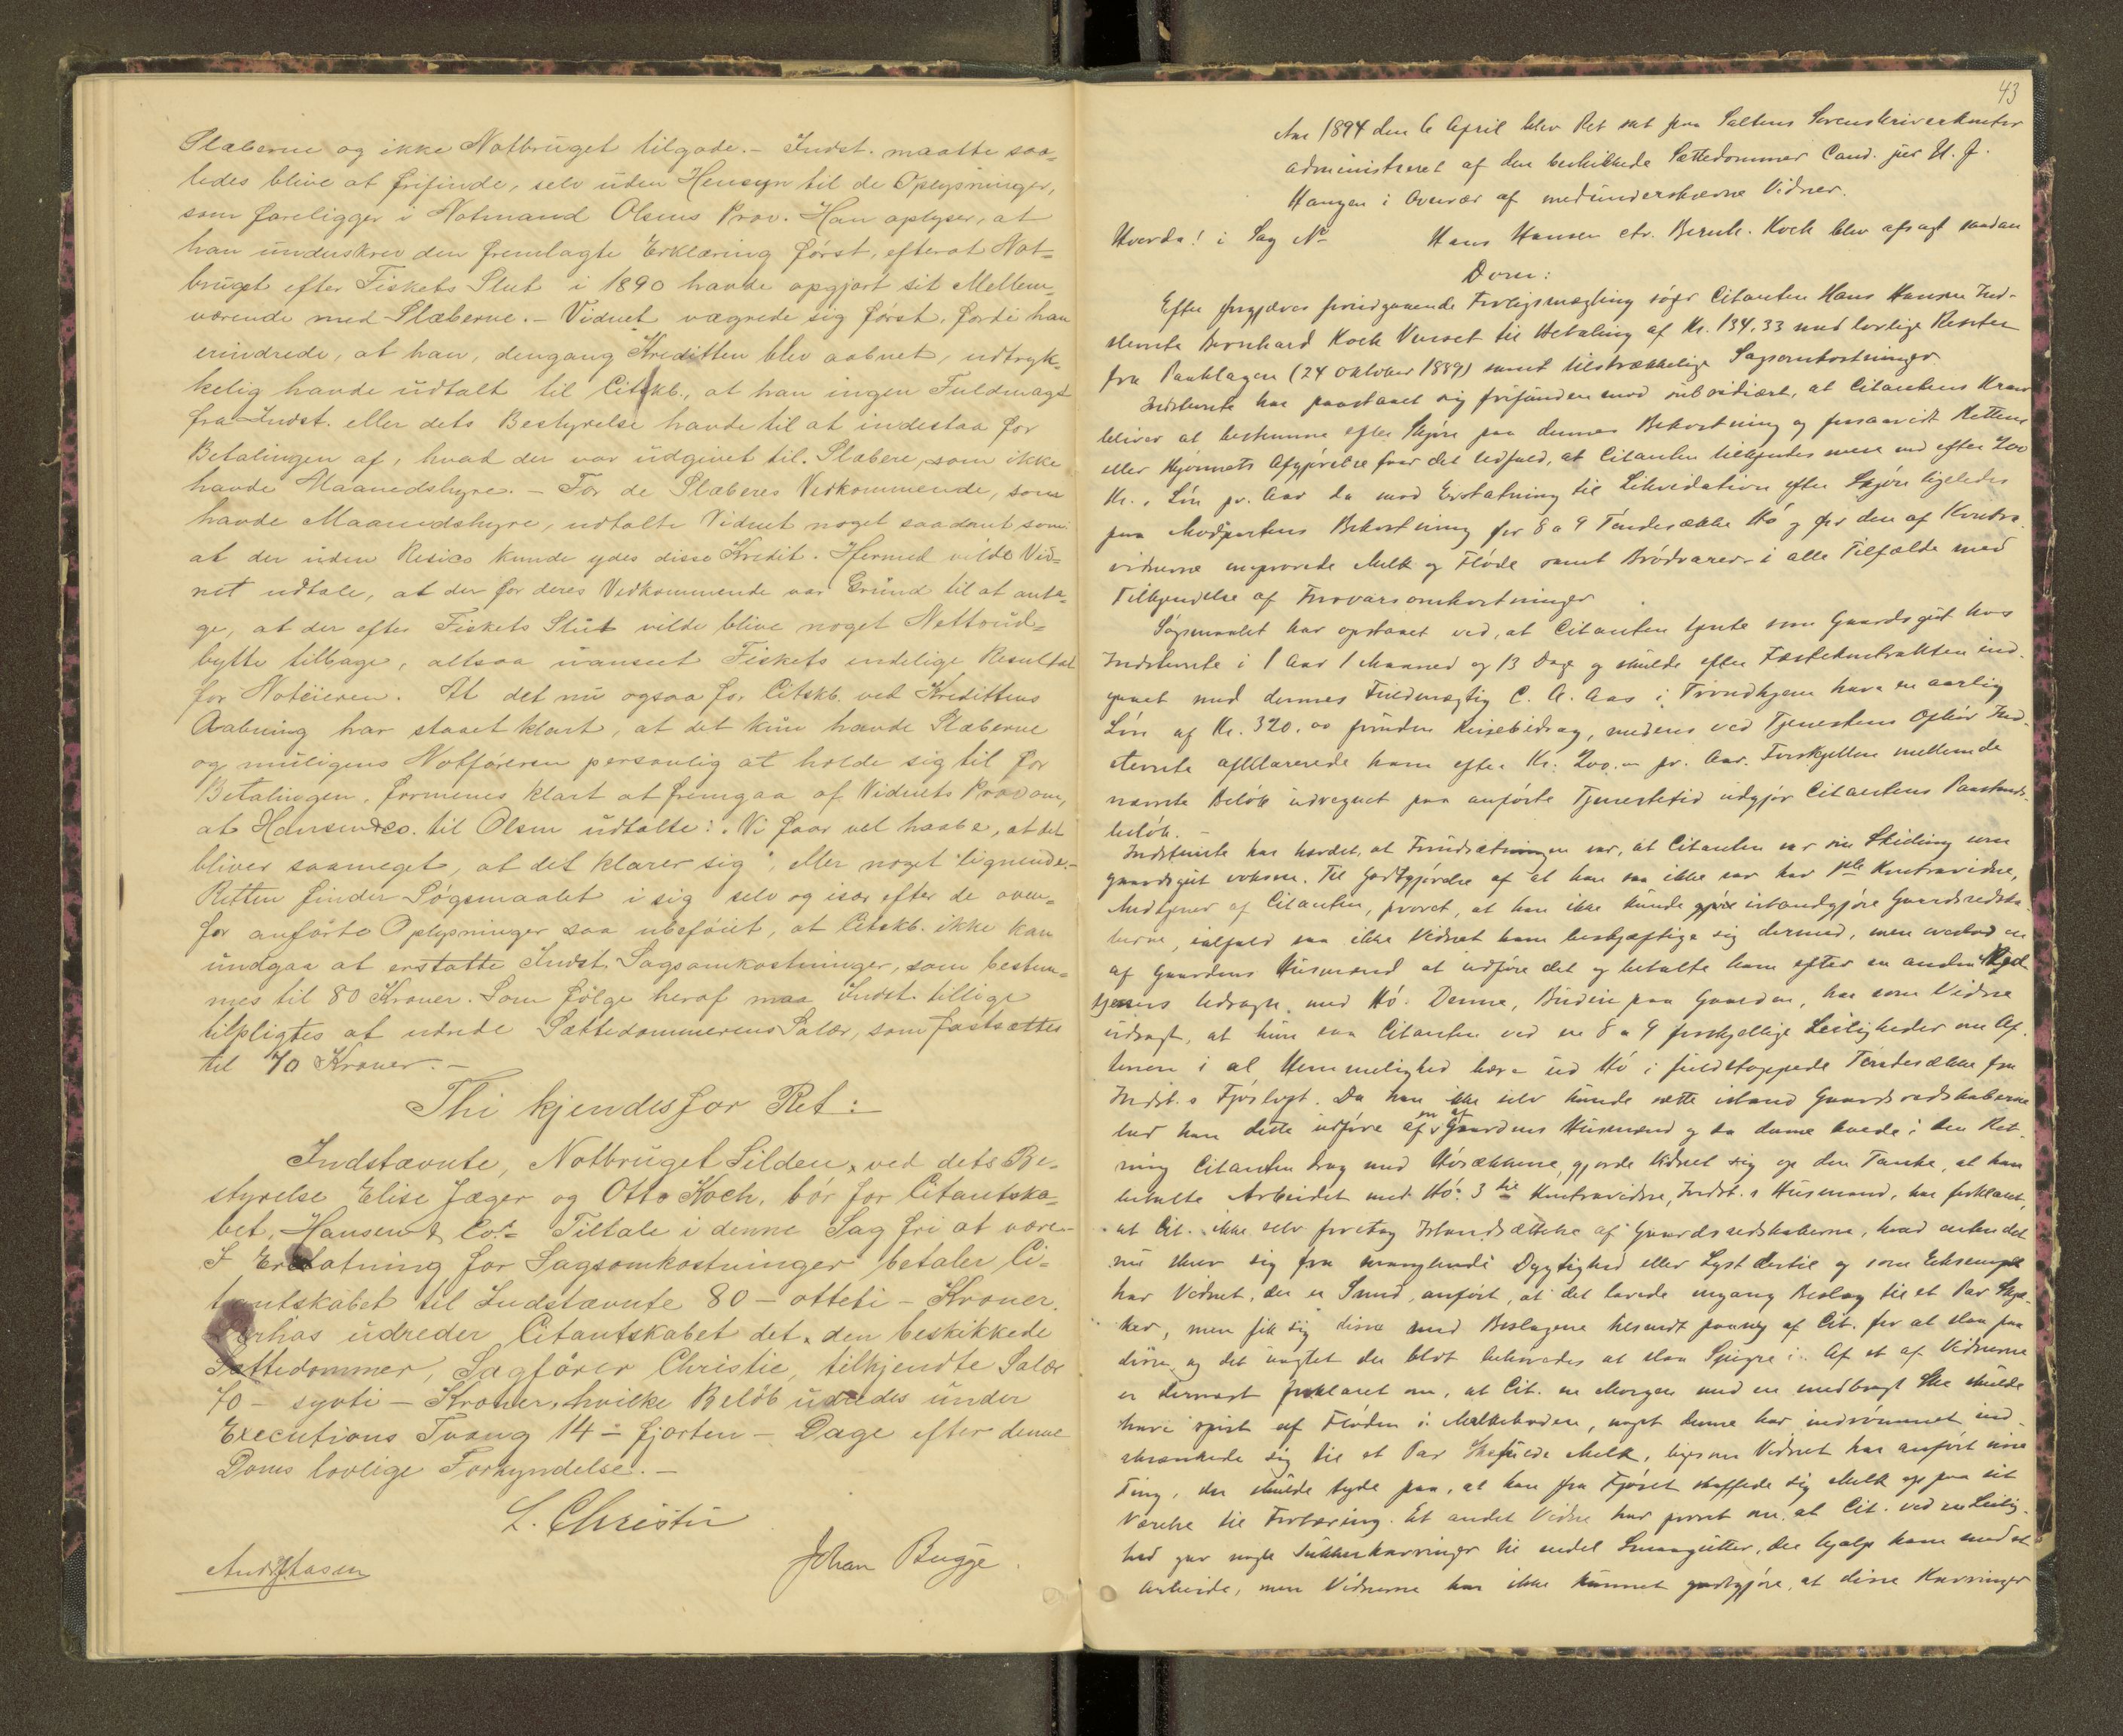 Slæberne og ikke Notbruget tilgode. – Indst. maatte saa=
ledes blive at frifinde, selv uden Hensyn til de Oplysninger,
som foreligger i Notmand Olsens Prov. Han oplyser, at
han underskrev den fremlagte Erklæring først, efterat Not=
bruget efter Fiskets Slut i 1890 havde opgjort sit Mellem
værende med Slæberne. – Vidnet vægrede sig først, fordi han
erindrede, at han, dengang Kreditten blev aabnet, udtryk=
kelig havde udtalt til Citskb., at han ingen Fuldmagt
fra Indst. eller dets Bestyrelse havde til at indestaa for
Betalingen af, hvad der var udgivet til Slæbere, som ikke
havde Maanedshyre. – For de Slæberes Vedkommende, som
havde Maanedshyre, udtalte Vidnet noget saadant som
at der uden Resico kunde ydes disse Kredit. Hermed vilde Vid=
net udtale, at der for deres Vedkommende var Grund til at anta=
ge, at der efter Fiskets Slut vilde blive noget Nettoud=
bytte tilbage, altsaa uanseet Fiskets endelige Resultat
for Noteieren. At det nu ogsaa for Citskb. ved Kredittens
Aabning har staaet klart, at det kun havde Slæberne
og muligens Notføreren personlig at holde sig til for
Betalingen, formenes klart at fremgaa af Vidnets Prov om,
at Hansen & Co. til Olsen udtalte: "Vi faar vel haabe, at det
bliver saameget, at det klarer sig", eller noget lignende. –
Retten finder Søgsmaalet i sig selv og især efter de oven=
for anførte Oplysninger saa ubeføiet, at Citskb. ikke kan
undgaa at erstatte Indst. Sagsomkostninger, som bestem=
mes til 80 Kroner. Som følge heraf maa Indst. tillige
tilpligtes at udrede Sættedommerens Salær, som fastsættes
til 70 Kroner. –
Thi kjendes for Ret:
Indstævnte, Notbruget Silden, ved dets Be=
styrelse Elise Jæger og Otto Koch, bør for Citantska=
bet, Hansen & Co.s Tiltale i denne Sag fri at være.
I Erstatning for Sagsomkostninger betaler Ci=
tantskabet til Indstævnte 80 – otteti – Kroner.
Derhos udreder Citantskabet det, den beskikkede
Sættedommer, Sagfører Christie, tilkjendte Salær
70 – sytti – Kroner, hvilke Beløb udredes under
Executions Tvang 14 – fjorten – Dage efter denne
Doms lovlige Forkyndelse. –
L. Christie
Johan Bugge.
43
Aar 1894 den 6 April blev Ret sat paa Saltens Sorenskriverkontor
administreret af den beskikkede Sættedommer Cand. jur H. J.
Haugen i Overvær af medunderskrevne Vidner.
Hvorda! i Sag No Hans Hansen ctr. Bernh. Koch blev afsagt saadan
Dom:
Efter forgjæves foregaaende Forligsmægling søger Citanten Hans Hansen Ind-
stevnte Bernhard Koch Venset til Betaling af Kr. 134,33 med lovlige Renter
fra Paaklagen (24 oktober 1889) samt tilstrækkelige Sagsomkostninger
Indstevnte har paastaaet sig frifunden mod subsidiært, at Citantens Krav
bliver at bestemme efter Skjøn paa dennes Bekostning og forsaavidt Rettens
eller Skjønnets Afgjørelse faar det Udfald, at Citanten tilkjendes mere end efter 200
Kr. i Løn pr. Aar da mod Erstatning til Likvidation efter Skjøn ligeledes
paa Modpartens Bekostning for 8 a 9 Tøndesække Hø og for den af Kontra-
vidnerne omprovede Melk og Fløde samt Brødvarer i alle Tilfælde med
Tilkjendelse af Forsvarsomkostninger
Søgsmaalet har opstaaet ved, at Citanten tjente som Gaardsgut hos
Indstevnte i 1 Aar 1 Maaned og 13 Dage og skulde efter Fæstekontrakten ind-
gaaet med dennes Fuldmægtig C. A. Aas i Trondhjem have en aarlig
Løn af Kr. 320.00 foruden Reisebidrag, medens ved Tjenestens Ophør Ind-
stevnte afklarerede ham efter Kr. 200.00 pr. Aar. Forskjellen mellem de
nævnte Beløb udregnet paa anførte Tjenestetid udgjør Citantens Paastands-
beløb. –
Indstevnte har hævdet, at Forudsætningen var, at Citanten var sin Stilling som
gaardsgut voksen. Til Godtgjørelse af at han saa ikke var har 1ste Kontravidne,
Medtjener af Citanten, provet, at han ikke kunde gjøre istandgjøre Gaardsredska-
berne, ialfald saa ikke Vidnet ham beskjæftige sig dermed, men overlod en
af Gaardens Husmænd at udføre det og betalte ham efter en anden Med
tjeners Udsagn med Hø. Denne, Budeie paa Gaarden, har som Vidne
udsagt, at hun saa Citanten ved en 8 a 9 forskjellige Leiligheder om Af-
tenen i al Hemmelighed bære ud Hø i fuldstoppede Tøndesække fra
Indst.s Fjøsloft. Da han ikke selv kunde sætte istand Gaardsredskaberne
lod han dette udføre af en af Gaardens Husmænd og da denne boede i den Ret-
ning Citanten drog med Høsækkene, gjorde Vidnet sig op den Tanke, at han
betalte Arbeidet med Hø. 3die Kontravidne, Indst.s Husmand, har forklaret,
at Cit. ikke selv foretog Istandsættelse af Gaardsredskaberne, hvad enten det
nu skrev sig fra manglende Dygtighed eller Lyst dertil og som Eksempel
har Vidnet, der er Smed, anført, at det lavede engang Beslag til et Par Skja-
ker, men fik sig disse med Beslagene tilsendt paany af Cit. for at slaa paa
disse og det uagtet der blot behøvedes at slaa Spigre i. Af et af Vidnerne
er dernæst forklaret om, at Cit. en Morgen med en medbragt Ske skulde
have spist af Fløden i Melkeboden, noget denne har indrømmet ind-
skrænkede sig til et Par Skefulde Melk, ligesom Vidnet har anført visse
Ting, der skulde tyde paa, at han fra Fjøset skaffede sig Melk op paa sit
Værelse til Fortæring. Et andet Vidne har provet om, at Cit. ved en Leilig-
hed gav nogle Sukkerkavringer til endel Smaagutter, der hjalp ham med at
arbeide, men Vidnerne har ikke kunnet godtgjøre, at disse Kavringer